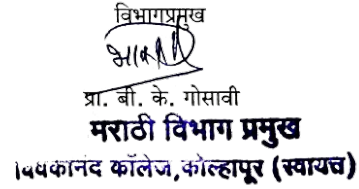 विभागप्रमुख
प्रा. बी. के. गोसावी
मराठी विभाग प्रमुख
विवेकानंद कॉलेज,कोल्हापूर (स्वायत्त)